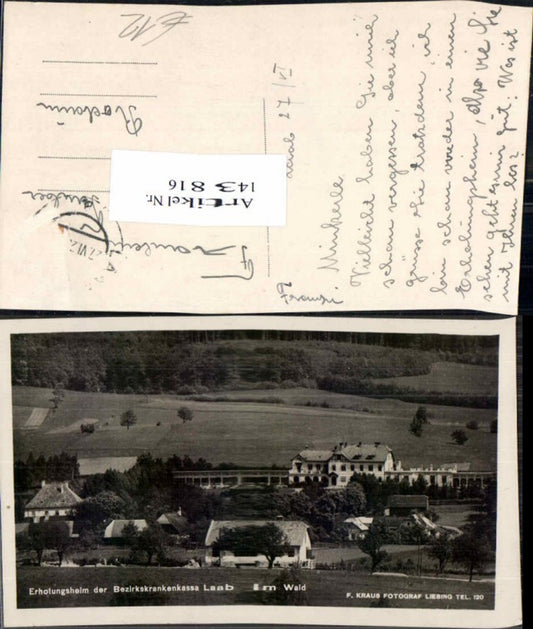 £12
Rodaun
Fräulein
Artikel Nr.
143 816
Laab 27/VI
Vielleicht haben Sie mich
schon vergessen, aber ich
grüsse Sie trotzdem, ich
bin schon wieder in einem
Erholungsheim, also wie Sie
sehen geht es mir gut. Was ist
mit Ihnen los?
Erholungsheim der Bezirkskrankenkassa Laab im Wald
F. KRAUS FOTOGRAF LIESING TEL. 120